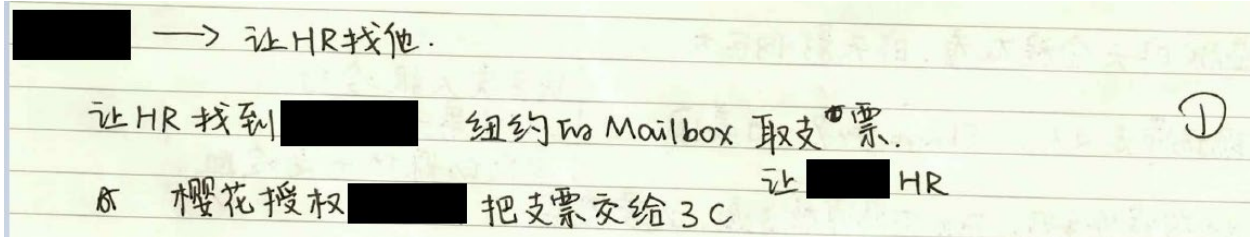 → 让HR找他.
让HR找到 纽约 Mailbox 取支票.
①
让 HR
樱花授权 把支票交给3C